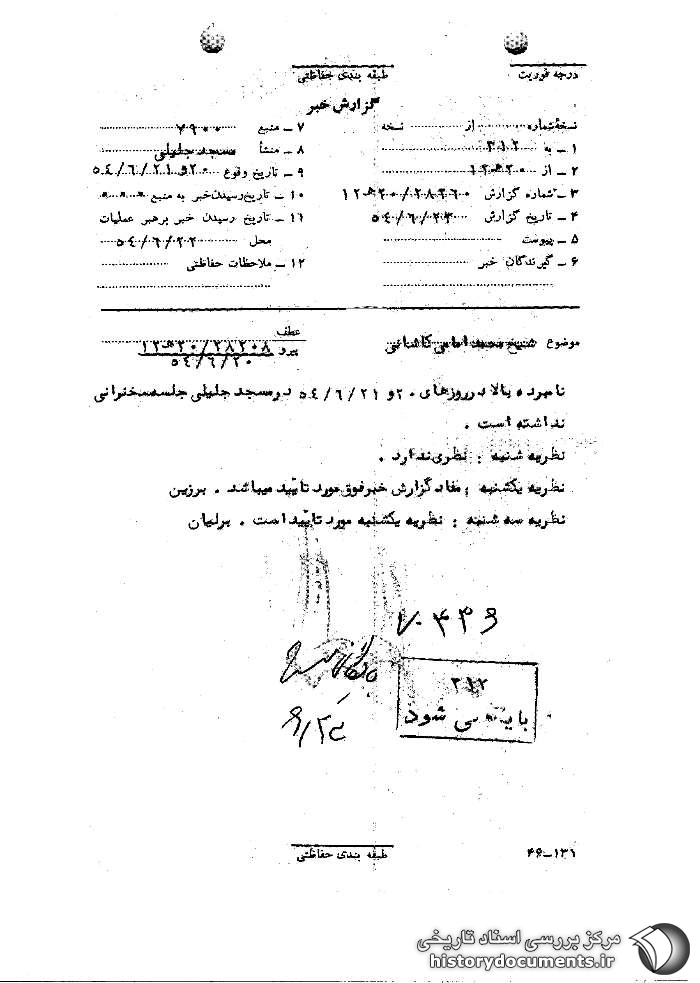 درجه فوریت
طبقه بندی حفاظتی
گزارش خبر
نسخهٔ شماره از نسخه
۱ ـ به ۳۱۲
۲ ـ از ۲۰ هـ ۱۲
۳ ـ شماره گزارش ۲۸۲۶۰/ ۲۰ هـ ۱۲
۴ ـ تاریخ گزارش ۵٤/۶/۲۳
۵ ـ پیوست
۶ ـ گیرندگان خبر
۷ ـ منبع ۷۹۰۰
۸ ـ منشأ مسجد جلیلی
۹ ـ تاریخ وقوع ۲۰و۵٤/۶/۲۱
۱۰ ـ تاریخ رسیدن خبر به منبع
۱۱ ـ تاریخ رسیدن خبر برهبر عملیات
محل ۵٤/۶/۲۲
۱۲ ـ ملاحظات حفاظتی
موضوع شیخ محمد امامی کاشانی
عطف
پیرو ۲۸۲۰۸/ ۲۰ هـ ۱۲
۵٤/۶/۲۰
نامبرده بالا در روزهای ۲۰ و ۵٤/۶/۲۱ در مسجد جلیلی جلسه سخنرانی
نداشته است .
نظریه شنبه : نظری ندارد .
نظریه یکشنبه : مفاد گزارش خبر فوق مورد تایید میباشد . برزین
نظریه سه شنبه : نظریه یکشنبه مورد تایید است . برلیان
۳۱۲
می شود
طبقه بندی حفاظتی
۴۶-۱۳۱
مرکز بررسی اسناد تاریخی
historydocuments.ir